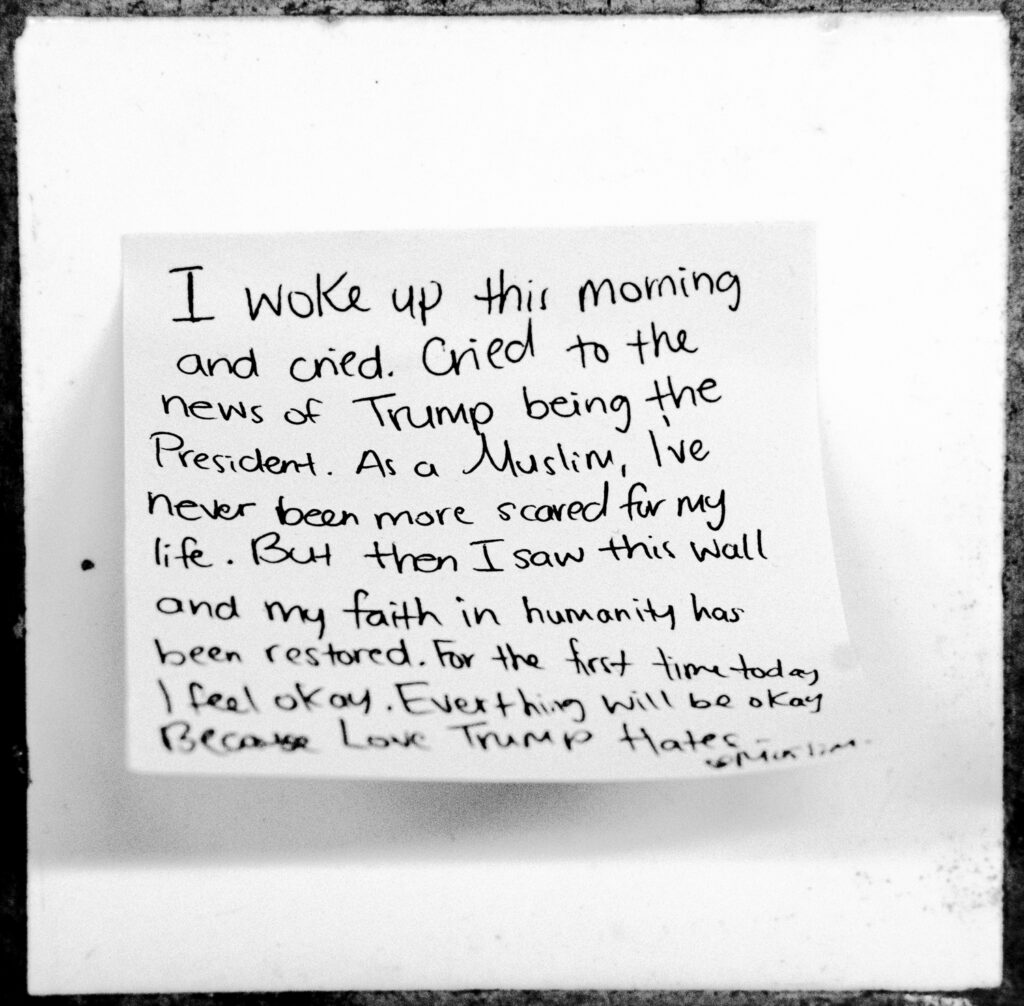 I woke up this morning
and cried. Cried to the
news of Trump being the
President. As a Muslim, I've
never been more scared for my
life. But then I saw this wall
and my faith in humanity has
been restored. For the first time today
I feel okay. Everthing will be okay
Because Love Trump Hates